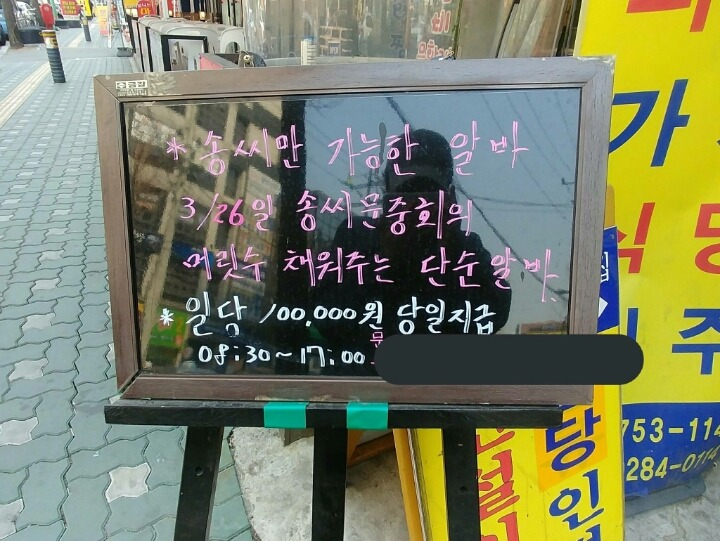 * 송씨만 가능한 알바
3/26일 송씨문중회의
머릿수 채워주는 단순알바.
* 일당 100,000원 당일지급
08:30~17:00
문
가
식 당
주
753-114
284-0114
당
인